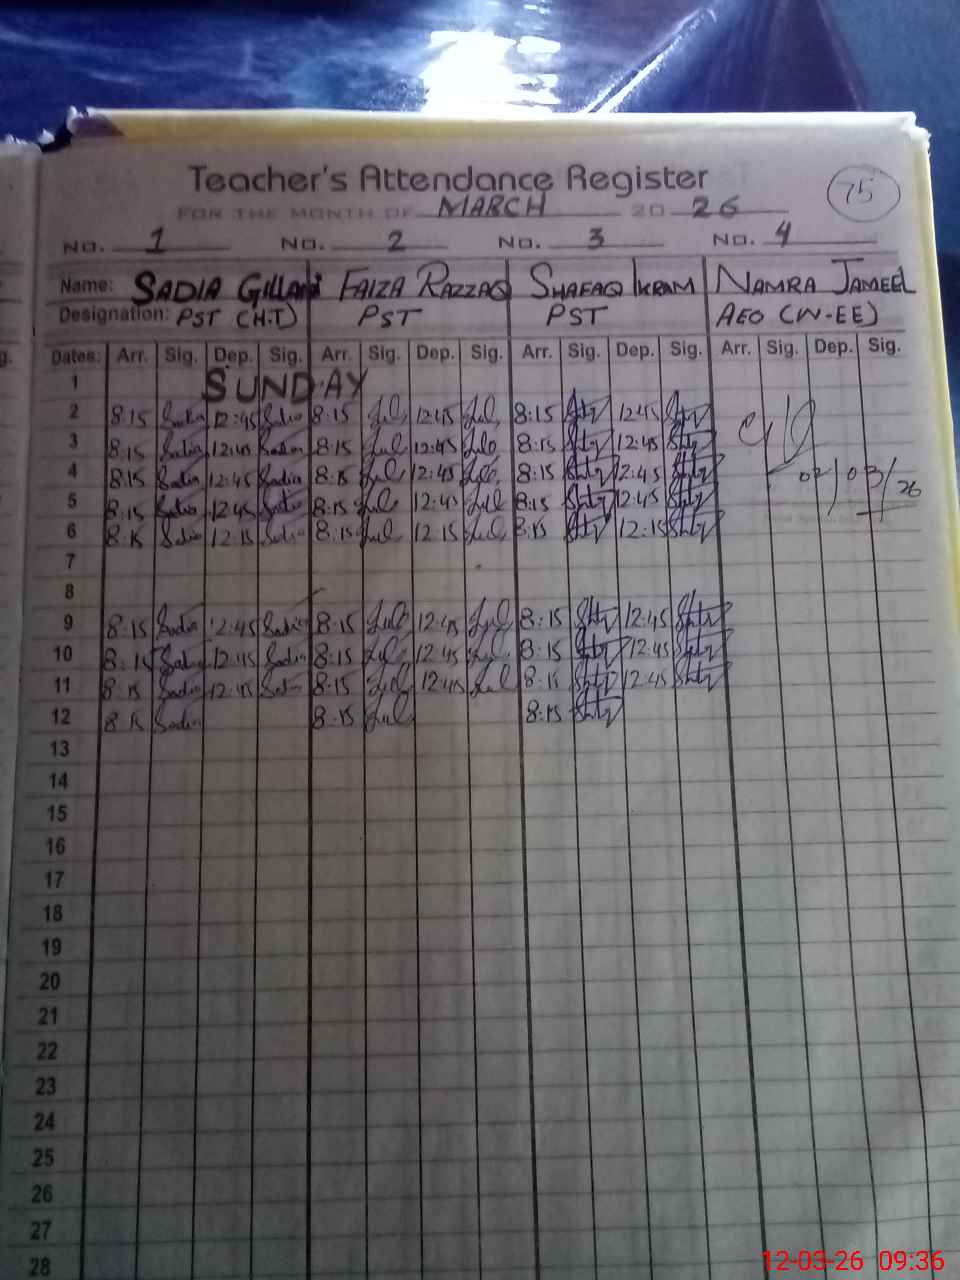 Teacher's Attendance Register
75
FOR THE MONTH OF MARCH 20 26
NO. 1 NO. 2 NO. 3 NO. 4
Name: SADIA GILLANI FAIZA RAZZAQ SHAFAQ IKRAM NAMRA JAMEEL
Designation: PST (H.T) PST PST AEO (W-EE)
Dates: Arr. Sig. Dep. Sig. Arr. Sig. Dep. Sig. Arr. Sig. Dep. Sig. Arr. Sig. Dep. Sig.
1 SUNDAY
2 8:15 Sadia 12:45 Sadia 8:15 12:45 8:15 12:45
3 8:15 Sadia 12:45 Sadia 8:15 12:45 8:15 12:45
4 8:15 Sadia 12:45 Sadia 8:15 12:45 8:15 12:45 02/03/26
5 8:15 Sadia 12:45 Sadia 8:15 12:45 8:15 12:45
6 8:15 Sadia 12:15 Sadia 8:15 12:15 8:15 12:15
7
8
9 8:15 Sadia 12:45 Sadia 8:15 12:45 8:15 12:45
10 8:15 Sadia 12:45 Sadia 8:15 12:45 8:15 12:45
11 8:15 Sadia 12:45 Sadia 8:15 12:45 8:15 12:45
12 8:15 Sadia 8:15 8:15
13
14
15
16
17
18
19
20
21
22
23
24
25
26
27
28
12-03-26 09:36